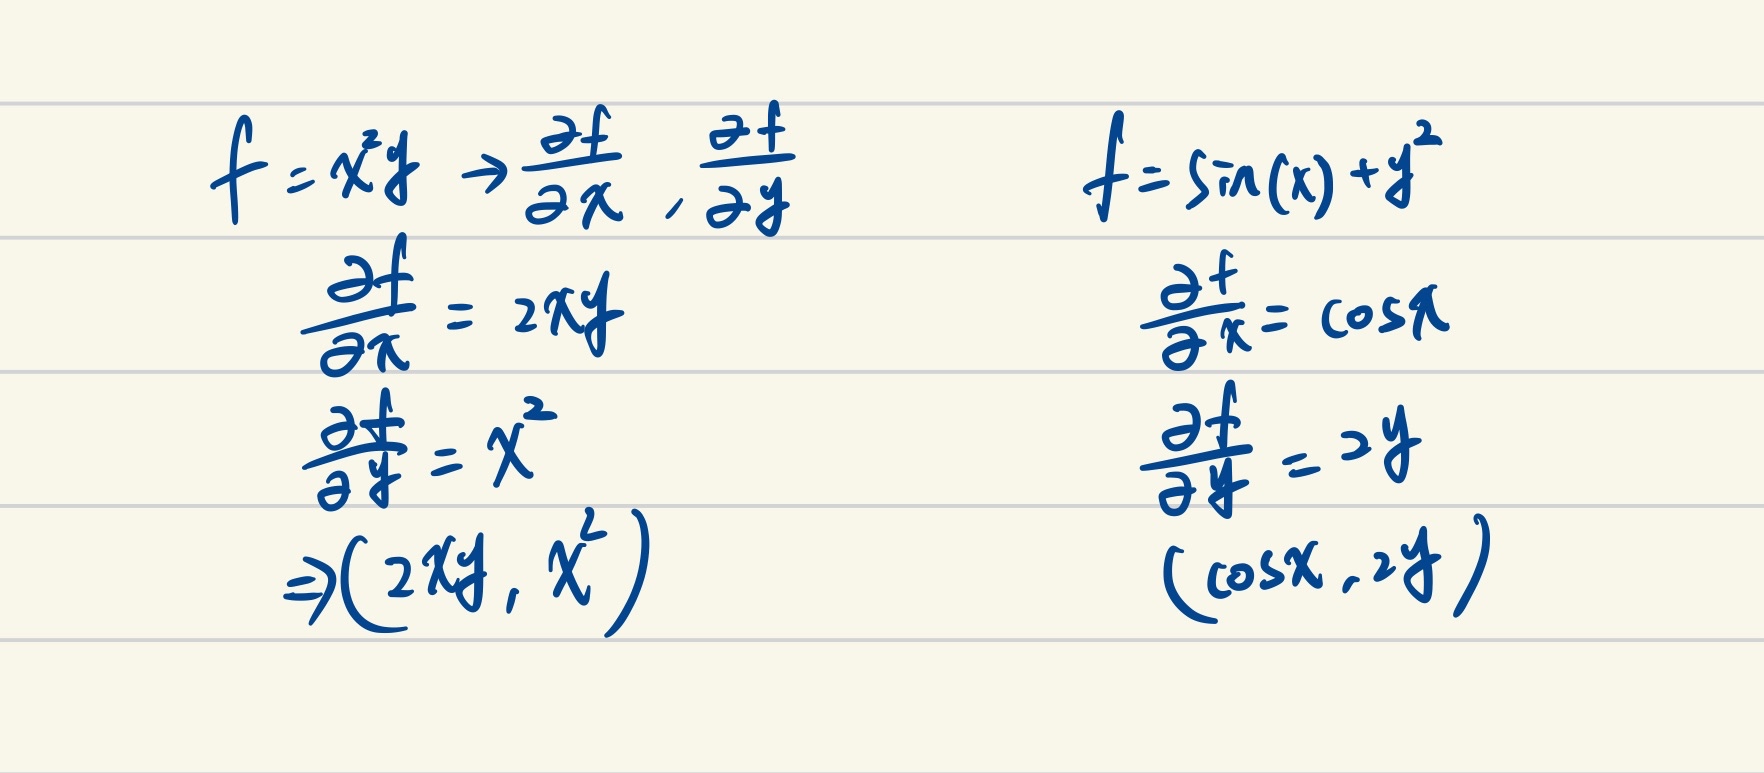 f = x²y → ∂f/∂x , ∂f/∂y
∂f/∂x = 2xy
∂f/∂y = x²
⇒ (2xy, x²)
f = sin(x) + y²
∂f/∂x = cosx
∂f/∂y = 2y
(cosx, 2y)